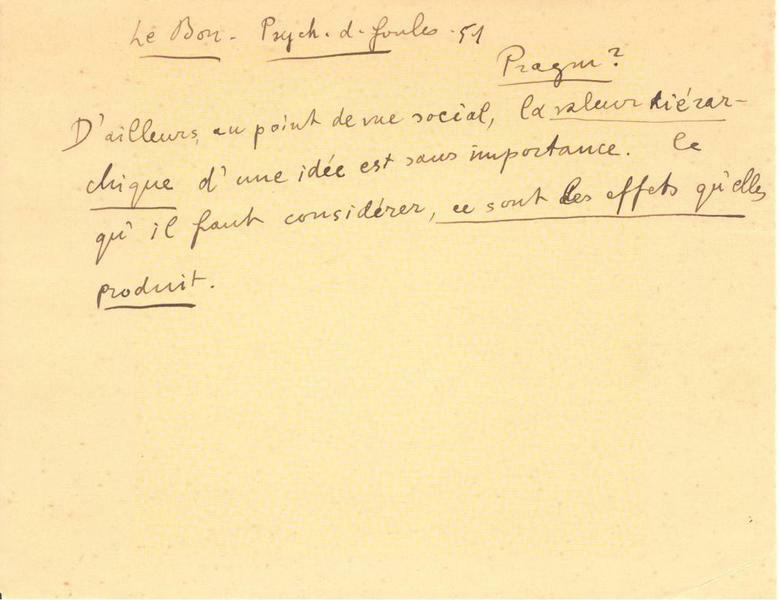 Le Bon - Psych. d. foules - 51
Pragm?
D'ailleurs, au point de vue social, la valeur hiérar-
chique d'une idée est sans importance. Ce
qu'il faut considérer, ce sont les effets qu'elles
produit.